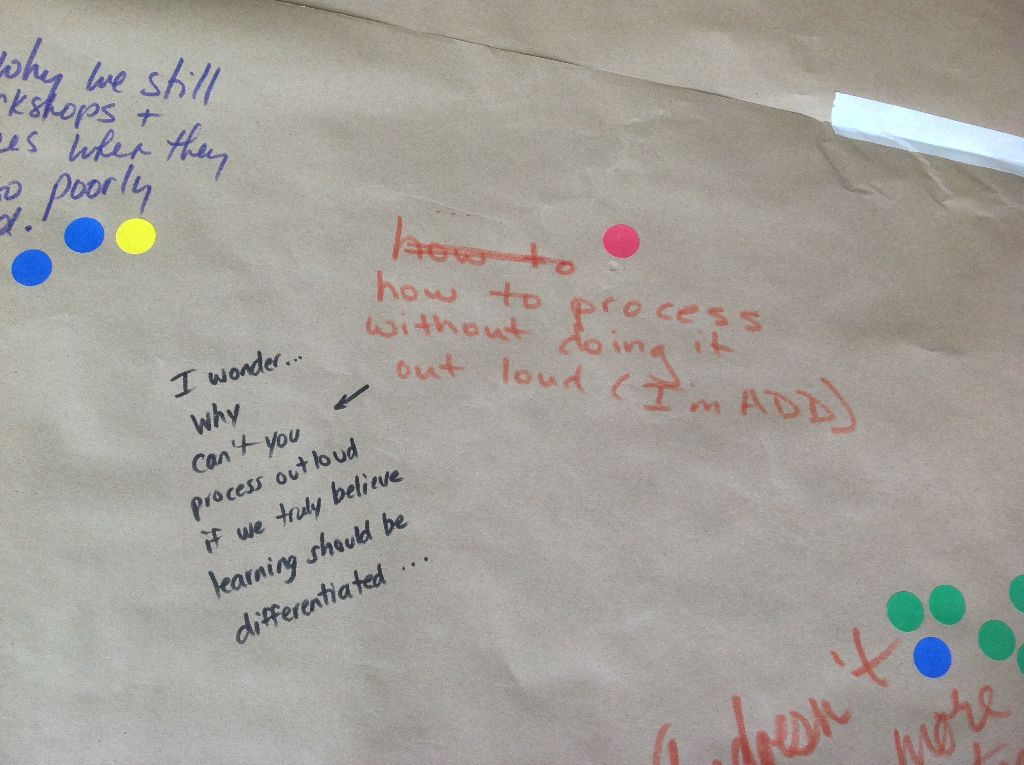 Why we still
kshops +
es when they
so poorly
d.
how to
how to process
without doing it
out loud (I'm ADD)
I wonder...
Why
can't you
process out loud
if we truly believe
learning should be
differentiated ...
doesn't
more